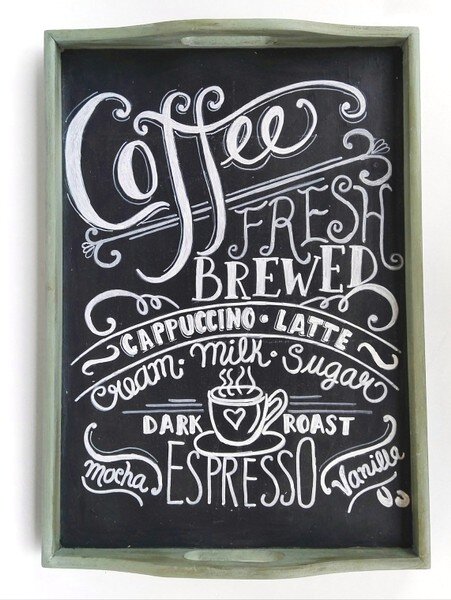 Coffee
FRESH
BREWED
CAPPUCCINO • LATTE
Cream • Milk • Sugar
DARK ROAST
mocha ESPRESSO Vanilla